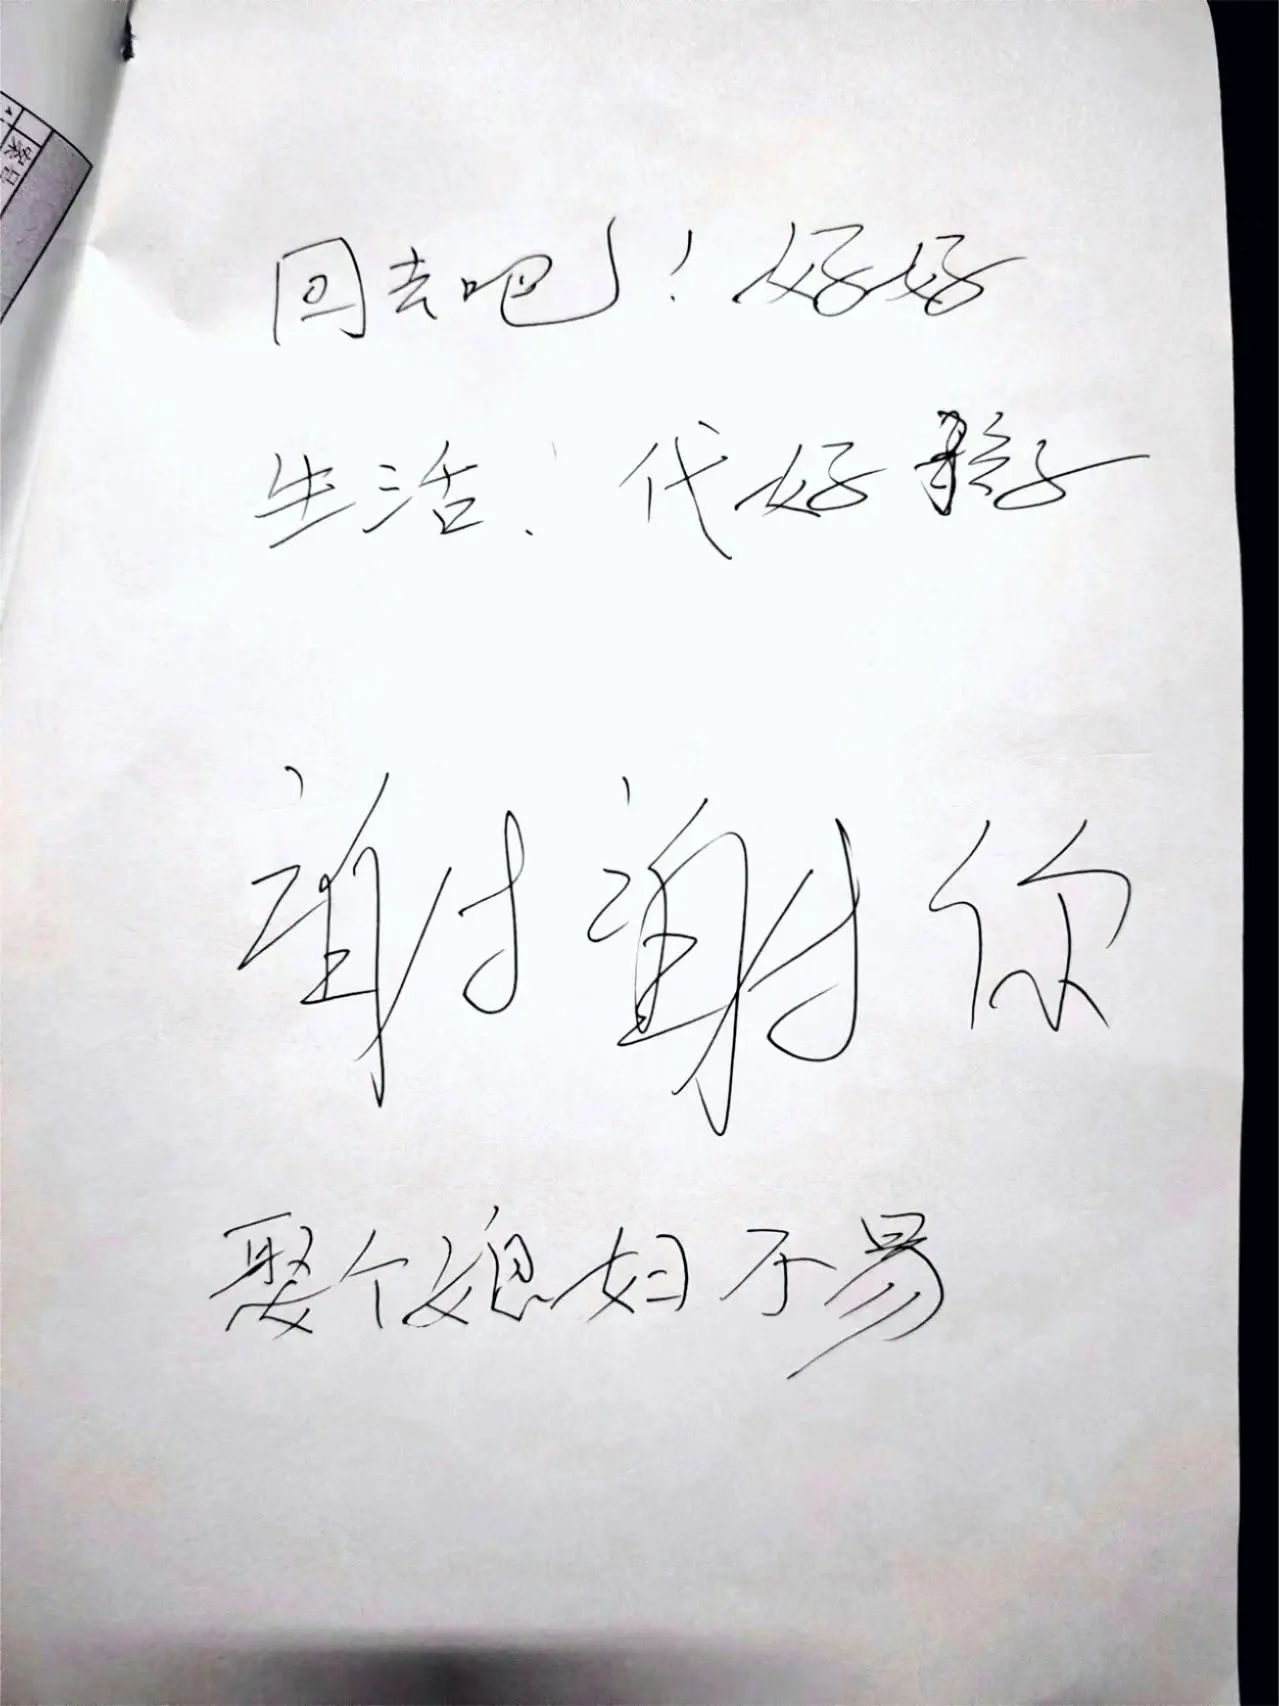 回去吧！好好
生活、代好孩子
谢谢你
娶个媳妇不易